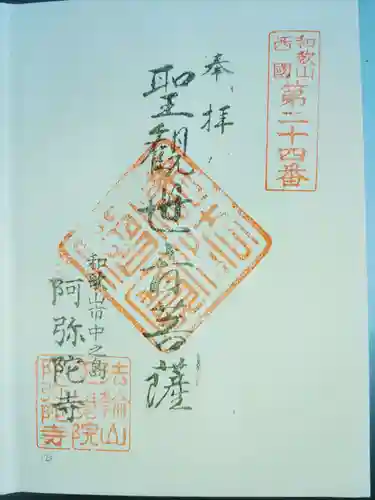 和歌山
西國
第二十四番
奉拝
聖観世音菩薩
和歌山市中之島
阿弥陀寺
法輪山
院
阿弥陀寺